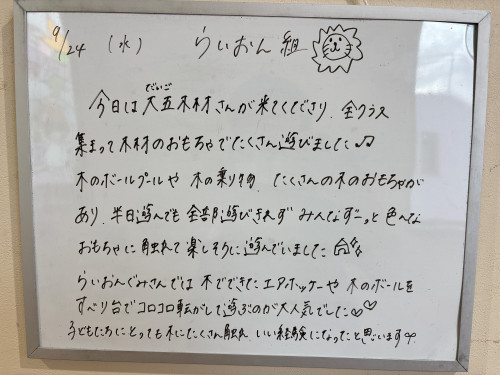 9/24 (水) らいおん 組
だいご
今日は 大五木材さんが来てくださり、全クラス
集まって木材のおもちゃでたくさん遊びました♫
木のボールプールや 木の乗り物、たくさんの木のおもちゃが
あり、半日遊んでも 全部遊びきれず みんなずーっと 色々な
おもちゃに 触れて 楽しそうに 遊んでいました
らいおんぐみさんでは 木でできた エアホッケーや 木のボールを
すべり台でコロコロ転がして遊ぶのが大人気でした♡♡
子どもたちにとっても木にたくさん触れ いい経験になったと思います♡